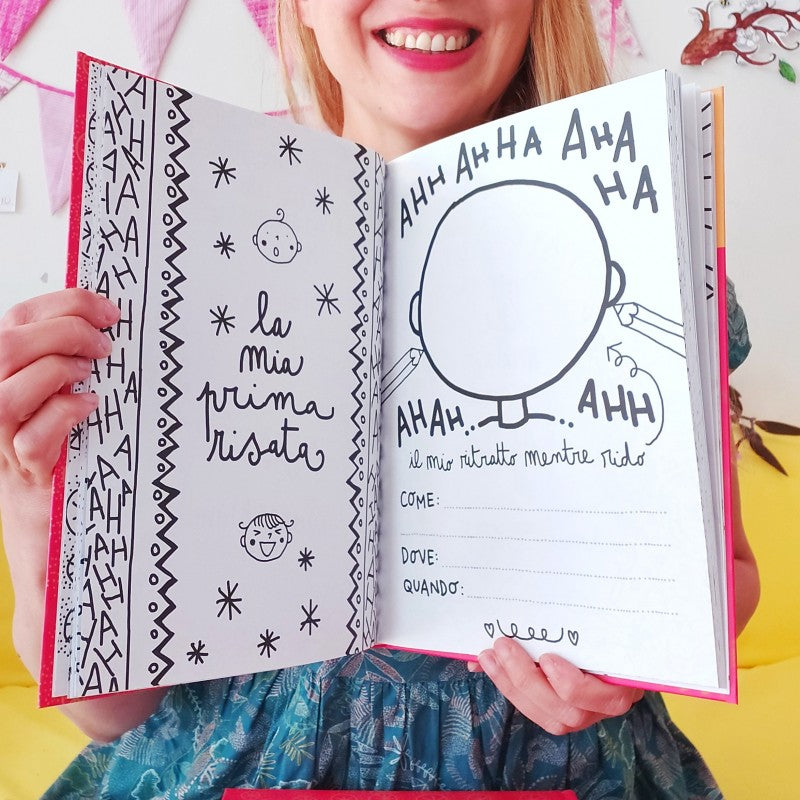 la
mia
prima
risata
AHH AHHA AHA
HA
AHAH.. ..AHH
il mio ritratto mentre rido
COME:
DOVE:
QUANDO: